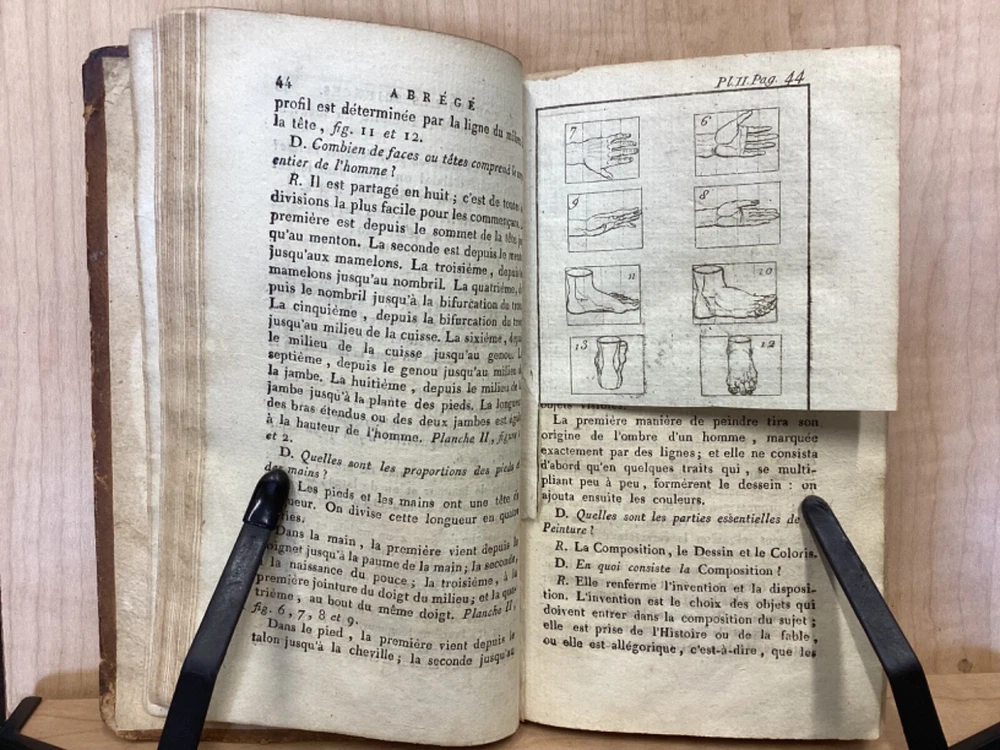 44 ABRÉGÉ
profil est déterminée par la ligne du
la tête, fig. 11 et 12.
D. Combien de faces ou têtes comprend
entier de l'homme ?
R. Il est partagé en huit ; c'est de
divisions la plus facile pour les
première est depuis le sommet de la tête
qu'au menton. La seconde est depuis le
jusqu'aux mamelons. La troisième,
mamelons jusqu'au nombril. La quatrième,
puis le nombril jusqu'à la bifurcation du
La cinquième, depuis la bifurcation du
jusqu'au milieu de la cuisse. La sixième,
le milieu de la cuisse jusqu'au genou.
septième, depuis le genou jusqu'au milieu
la jambe. La huitième, depuis le milieu
jambe jusqu'à la plante des pieds. La
des bras étendus ou des deux jambes est
à la hauteur de l'homme. Planche II,
et 2.
D. Quelles sont les proportions des pieds
mains ?
Les pieds et les mains ont une tête
On divise cette longueur en
Dans la main, la première vient depuis
jusqu'à la paume de la main ; la seconde,
la naissance du pouce ; la troisième, à la
première jointure du doigt du milieu ; et la
trième, au bout du même doigt. Planche II,
fig. 6, 7, 8 et 9.
Dans le pied, la première vient depuis le
talon jusqu'à la cheville ; la seconde jusqu'au
Pl.II.Pag. 44
7 6
9 8
11 10
13 12
objets visibles.
La première manière de peindre tira son
origine de l'ombre d'un homme, marquée
exactement par des lignes ; et elle ne consista
d'abord qu'en quelques traits qui, se multi-
pliant peu à peu, formèrent le dessein : on
ajouta ensuite les couleurs.
D. Quelles sont les parties essentielles de
Peinture ?
R. La Composition, le Dessin et le Coloris.
D. En quoi consiste la Composition ?
R. Elle renferme l'invention et la disposi-
tion. L'invention est le choix des objets qui
doivent entrer dans la composition du sujet ;
elle est prise de l'Histoire ou de la fable,
ou elle est allégorique, c'est-à-dire, que les